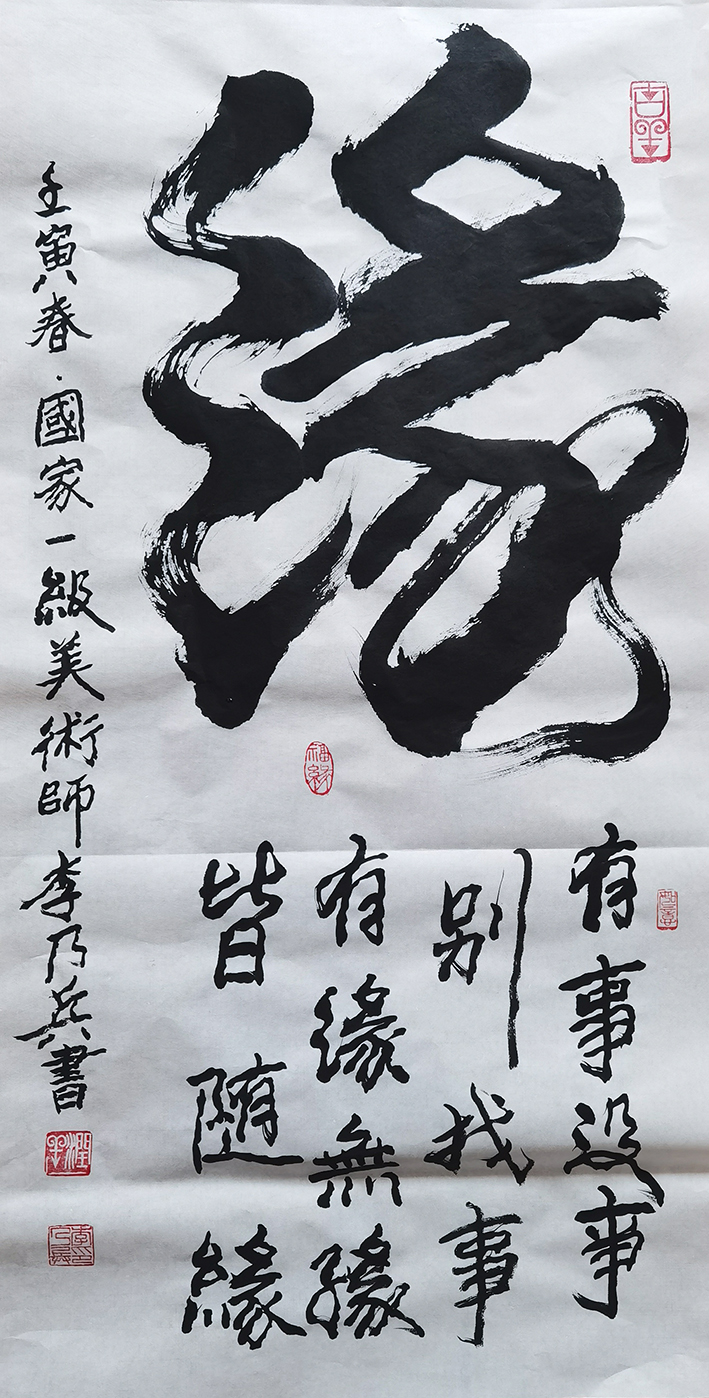 緣
有事没事
别找事
有緣無緣
皆隨緣
壬寅春·國家一級美術師李乃兵書
吉羊
福緣